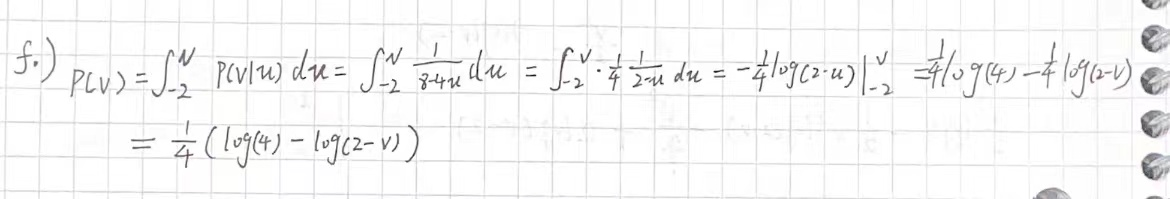 f.) P(v) = ∫_{-2}^{v} P(v|u) du = ∫_{-2}^{v} \frac{1}{8-4u} du = ∫_{-2}^{v} · \frac{1}{4} \frac{1}{2-u} du = -\frac{1}{4} log(2-u) |_{-2}^{v} = \frac{1}{4} log(4) - \frac{1}{4} log(2-v)
= \frac{1}{4} (log(4) - log(2-v))